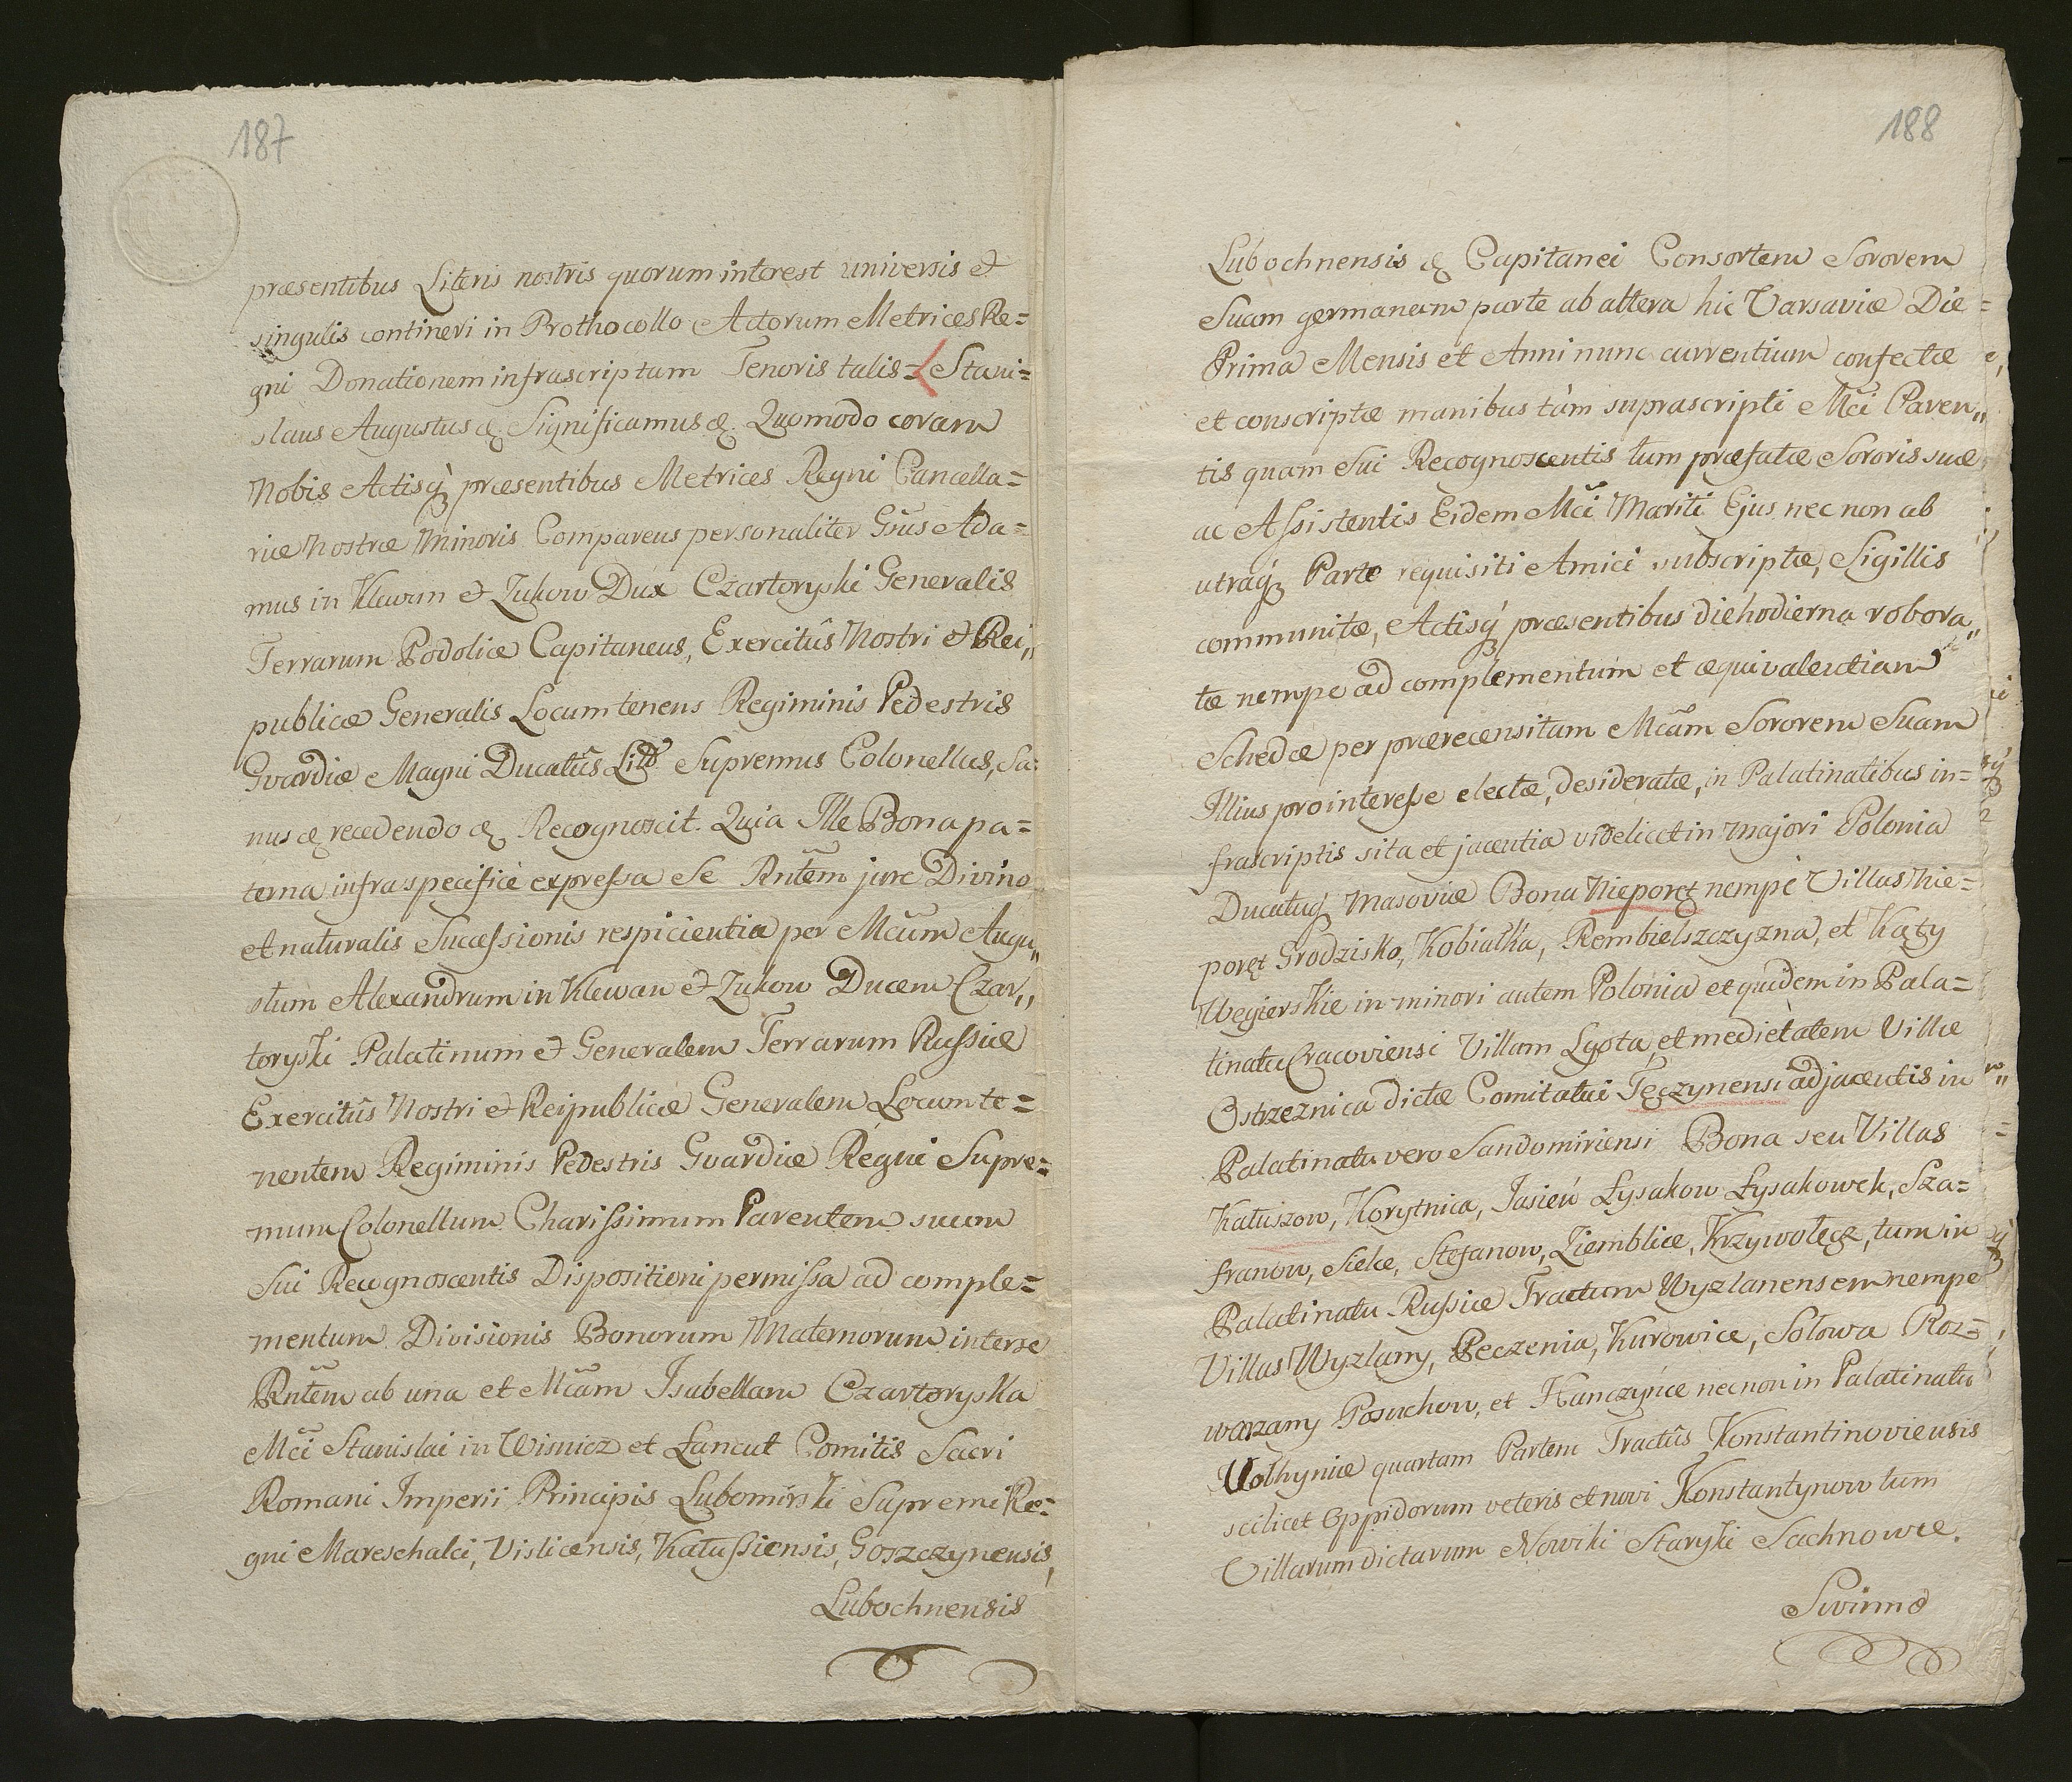 187
præsentibus Literis nostris quorum interest universis et
singulis contineri in Prothocollo Actorum Metrices Re=
gni Donationem infrascriptam Tenoris talis = Stani=
slaus Augustus &. Significamus &. Quomodo coram
Nobis Actisq præsentibus Metrices Regni Cancella=
riæ Nostræ Minoris Comparens personaliter Gsus Ada=
mus in Klewan et Zukow Dux Czartoryski Generalis
Terrarum Podoliæ Capitaneus, Exercitûs Nostri et Rei„
publicæ Generalis Locumtenens Regiminis Pedestris
Gvardiæ Magni Ducatûs Litt Supremus Colonellus, Sa=
nus & recedendo & Recognoscit. Quia Ille Bona pa=
terna infraspecificè expressa Se Rntem jure Divino
et naturalis Successionis respicientia per Mcum Augu„
stum Alexandrum in Klewan et Zukow Ducem Czar„
toryski Palatinum et Generalem Terrarum Russiæ
Exercitûs Nostri et Reipublicæ Generalem Locumte=
nentem Regiminis Pedestris Gvardiæ Regni Supre=
mum Colonellum Charissimum Parentem suum
Sui Recognoscentis Dispositioni permissa ad comple=
mentum Divisionis Bonorum Maternorum inter se
Rntem ab una et Mcam Isabellam Czartoryska
Mci Stanislai in Wisnicz et Lancut Comitis Sacri
Romani Imperii Principis Lubomirski Supremi Re=
gni Mareschalci, Vislicensis, Kałussiensis, Goszczynensis,
Lubochnensis
188
Lubochnensis & Capitanei Consortem Sororem
Suam germanam parte ab altera hic Varsaviæ Die=
Prima Mensis et Anni nunc currentium confectæ
et conscriptæ manibus tàm suprascripti Mci Paren„
tis quam Sui Recognoscentis tum præfatæ Sororis suæ
ac Assistentis Eidem Mci Mariti Ejus nec non ab
utraq Parte requisiti Amici subscriptæ, Sigillis
communitæ, Actisq præsentibus die hodierna robora„
tæ nempe ad complementum et æquivalentiam
Schedæ per prærecensitam Mcam Sororem Suam
Illius pro interesse electæ, desideratæ, in Palatinatibus in=
frascriptis sita et jacentia videlicet in Majori Polonia
Ducatuq Masoviæ Bona Nieporęt nempè Villas Nie=
poręt Grodzisko, Kobiałka, Rembielszczyzna, et Kąty
Węgierskie in minori autem Polonia et quidem in Pala=
tinatu Cracoviensi Villam Lgota et medietatem Villæ
Ostrzeznica dictæ Comitatui Tęczynensi adjacentis in
Palatinatu vero Sandomiriensi Bona seu Villas
Katuszow, Korytnica, Jasień Łysakow Łysakowek, Sza=
franow, Sielce, Stefanow, Ziemblice, Krzywołęcz, tum in
Palatinatu Russiæ Tractum Wyzlanensem nempe
Villas Wyzlany, Peczenia, Kurowice, Solowa Roz=
warzany Posuchow, et Hanczynce necnon in Palatinatu
Volhyniæ quartam Partem Tractûs Konstantinoviensis
scilicet Oppidorum veteris et novi Konstantynow tum
Villarum dictarum Nowiki Staryki Sachnowce.
Swinna